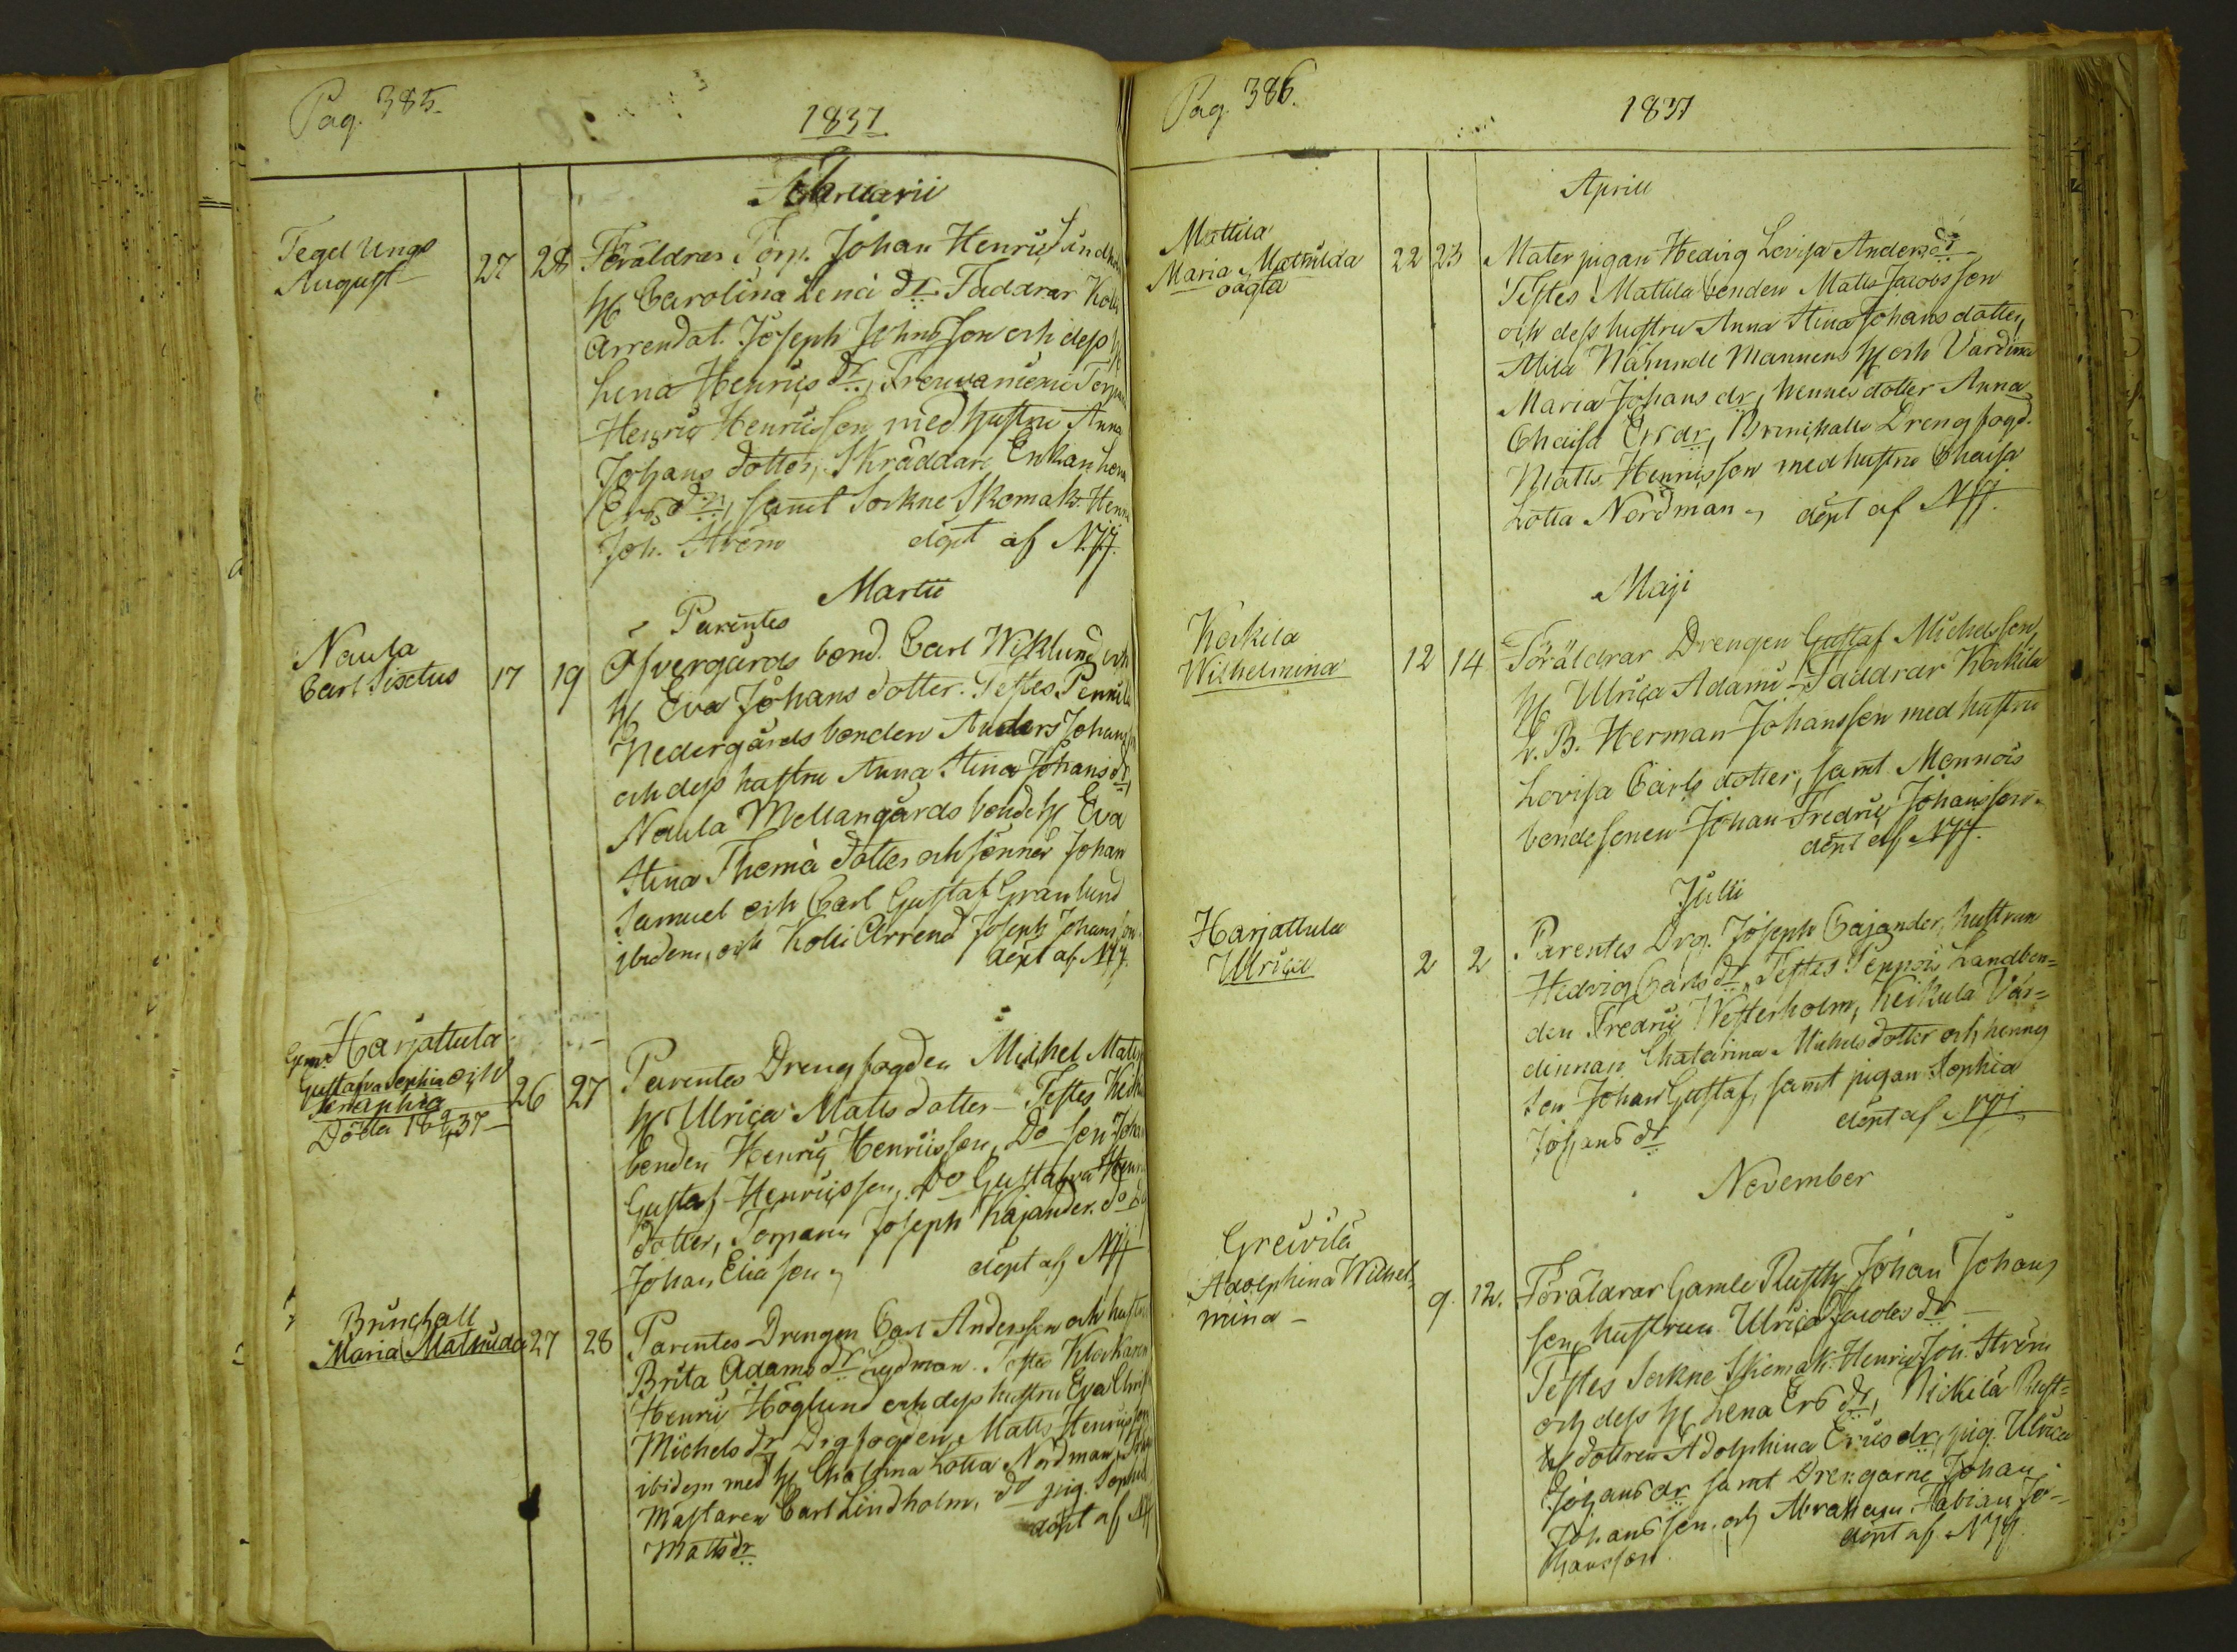 Pag. 385.
1837
Februarii
Tegel Ungs
August
27 28 Föräldrar Torp. Johan Henric
H Carolina Lenä dr. Faddrar
Arrendat. Joseph Johnsson och dess
Lena Henrics dr
Henric Henricsson med hustru Anna
Johans dotter, Skräddare Enkan
Ers dr, samt Sockne Skomak.
Joh. Ström döpt af
Martii
Parentes
Naula
Carl Sixtus
17 19 Öfvergårds bond. Carl Wiklund och
H Eva Johans dotter. Testes
Nedergårds bonden Anders
och dess hustru Anna Stina Johans dr
Naula Mellangårds bonde H Eva
Stina Thomä dotter och sönner Johan
Samuel och Carl Gustaf Granlund
ibidem, och Arrend Joseph Johansson
döpt af
Harjattula
Gustafva Sophia och
Seraphia
Döda 37
26 27 Parentes Drengfogden Michel
H Ulrica Matts dotter - Testes
bonden Henric Henricsson, Do Son
Gustaf Henricsson, Do Gustafva
dotter, Torparen Joseph Kajander, do
Johan Eliasson, döpt af
Brinchall
Maria Mathilda
27 28 Parentes Drengen Carl Andersson och
Brita Adams dr
Henric Höglund och dess hustru Eva
Michels dr, Drgfogden Matts Henricsson
ibidem med H Lotta Nordman,
Mästaren Carl Lindholm, do pig.
Matts dr döpt af
Pag. 386.
1837
Aprill
Mattila
Maria Mathilda
oägta
22 23 Mater pigan Hedvig Lovisa Anders dr
Testes Mattila bonden Matts Jacobsson
och dess hustru Anna Stina Johans dotter,
H och
Maria Johans dr, hennes dotter Anna
Ers dr, Brinchalls Drengfogd.
Matts Henricsson med hustru
Lotta Nordman, döpt af
Maji
Kockila
Wilhelmina
12 14 Föräldrar Drengen Gustaf Michelsson,
H Ulrica Adami - Faddrar Kockila
L. B. Herman Johansson med hustru
Lovisa Carls dotter, samt Monnois
bondesonen Johan Fredric Johansson
döpt af
Julii
Harjattula
Ulrica
2 2 Parentes Drg. Joseph Cajander, hustrun
Hedvig Carls dr, Testes Seppois Landbon=
den Fredric Westerholm, Vär=
dinnan Chatarina Michels dotter och hennes
Son Johan Gustaf, samt pigan Sophia
Johans dr döpt af
November
Greivila
Adolphina Wilhel=
mina
9. 12. Föräldrar Gamle Rusth Johan Johans
son, hustrun Ulrica Jacobs dr
Testes Sockne Skomak. Henric Joh. Ström
och dess H Lena Ers dr, Nickilä Rust=
h dottren Adolphina Erics dr, pig. Ulrica
Johans dr samt Drengarne Johan
Johansson och Abraham Fabian Jo=
hansson. döpt af